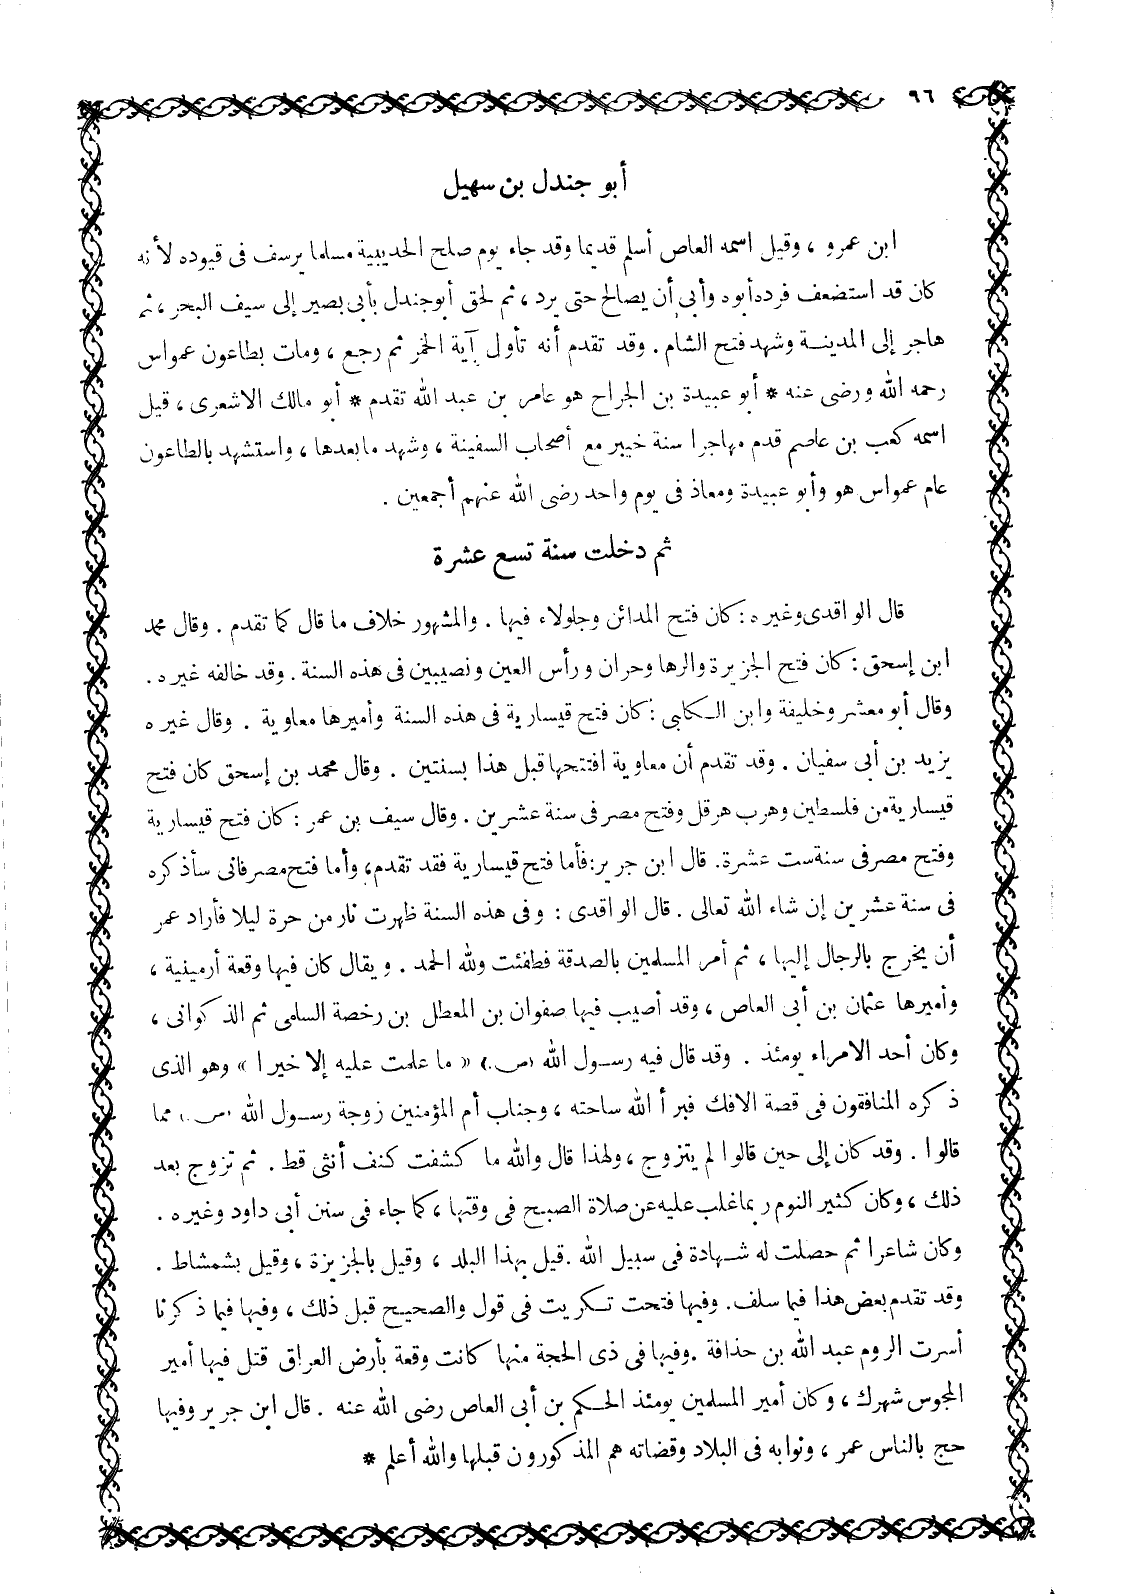 ٩٦
أبو جندل بن سهيل
ابن عمرو ، وقيل اسمه العاص أسلم قديما وقد جاء يوم صلح الحديبية مسلما يرسف فى قيوده لأنه
كان قد استضعف فرده أبوه وأبى أن يصالح حتى يرد ، ثم لحق أبو جندل بأبى بصير إلى سيف البحر ، ثم
هاجر إلى المدينة وشهد فتح الشام . وقد تقدم أنه تأول آية الخمر ثم رجع ، ومات بطاعون عمواس
رحمه الله ورضى عنه * أبو عبيدة بن الجراح هو عامر بن عبد الله تقدم * أبو مالك الاشعرى ، قيل
اسمه كعب بن عاصم قدم مهاجرا سنة خيبر مع أصحاب السفينة ، وشهد ما بعدها ، واستشهد بالطاعون
عام عمواس هو وأبو عبيدة ومعاذ فى يوم واحد رضى الله عنهم أجمعين .
ثم دخلت سنة تسع عشرة
قال الواقدى وغيره : كان فتح المدائن وجلولاء فيها . والمشهور خلاف ما قال كما تقدم . وقال محمد
ابن إسحق : كان فتح الجزيرة والرها وحران ورأس العين ونصيبين فى هذه السنة . وقد خالفه غيره .
وقال أبو معشر وخليفة وابن الكابى : كان فتح قيسارية فى هذه السنة وأميرها معاوية . وقال غيره
يزيد بن أبى سفيان . وقد تقدم أن معاوية افتتحها قبل هذا بسنتين . وقال محمد بن إسحق كان فتح
قيسارية من فلسطين وهرب هرقل وفتح مصر فى سنة عشرين . وقال سيف بن عمر : كان فتح قيسارية
وفتح مصر فى سنة ست عشرة . قال ابن جرير : فأما فتح قيسارية فقد تقدم ، وأما فتح مصر فانى سأذكره
فى سنة عشرين إن شاء الله تعالى . قال الواقدى : وفى هذه السنة ظهرت نار من حرة ليلا فأراد عمر
أن يخرج بالرجال إليها ، ثم أمر المسلمين بالصدقة فطفئت ولله الحمد . ويقال كان فيها وقعة أرمينية ،
وأميرها عثمان بن أبى العاص ، وقد أصيب فيها صفوان بن المعطل بن رخصة السلمى ثم الذكوانى ،
وكان أحد الامراء يومئذ . وقد قال فيه رسول الله (ص) « ما علمت عليه إلا خيرا » وهو الذى
ذكره المنافقون فى قصة الافك فبرأ الله ساحته ، وجناب أم المؤمنين زوجة رسول الله (ص) مما
قالوا . وقد كان إلى حين قالوا لم يتزوج ، ولهذا قال والله ما كشفت كنف أنثى قط . ثم تزوج بعد
ذلك ، وكان كثير النوم ربما غلب عليه عن صلاة الصبح فى وقتها ، كما جاء فى سنن أبى داود وغيره .
وكان شاعرا ثم حصلت له شهادة فى سبيل الله . قيل بهذا البلد ، وقيل بالجزيزة ، وقيل بشمشاط .
وقد تقدم بعض هذا فيما سلف . وفيها فتحت تكريت فى قول والصحيح قبل ذلك ، وفيها فيما ذكرنا
أسرت الروم عبد الله بن حذافة . وفيها فى ذى الحجة منها كانت وقعة بأرض العراق قتل فيها أمير
المجوس شهرك ، وكان أمير المسلمين يومئذ الحكم بن أبى العاص رضى الله عنه . قال ابن جرير وفيها
حج بالناس عمر ، ونوابه فى البلاد وقضاته هم المذكورون قبلها والله أعلم *